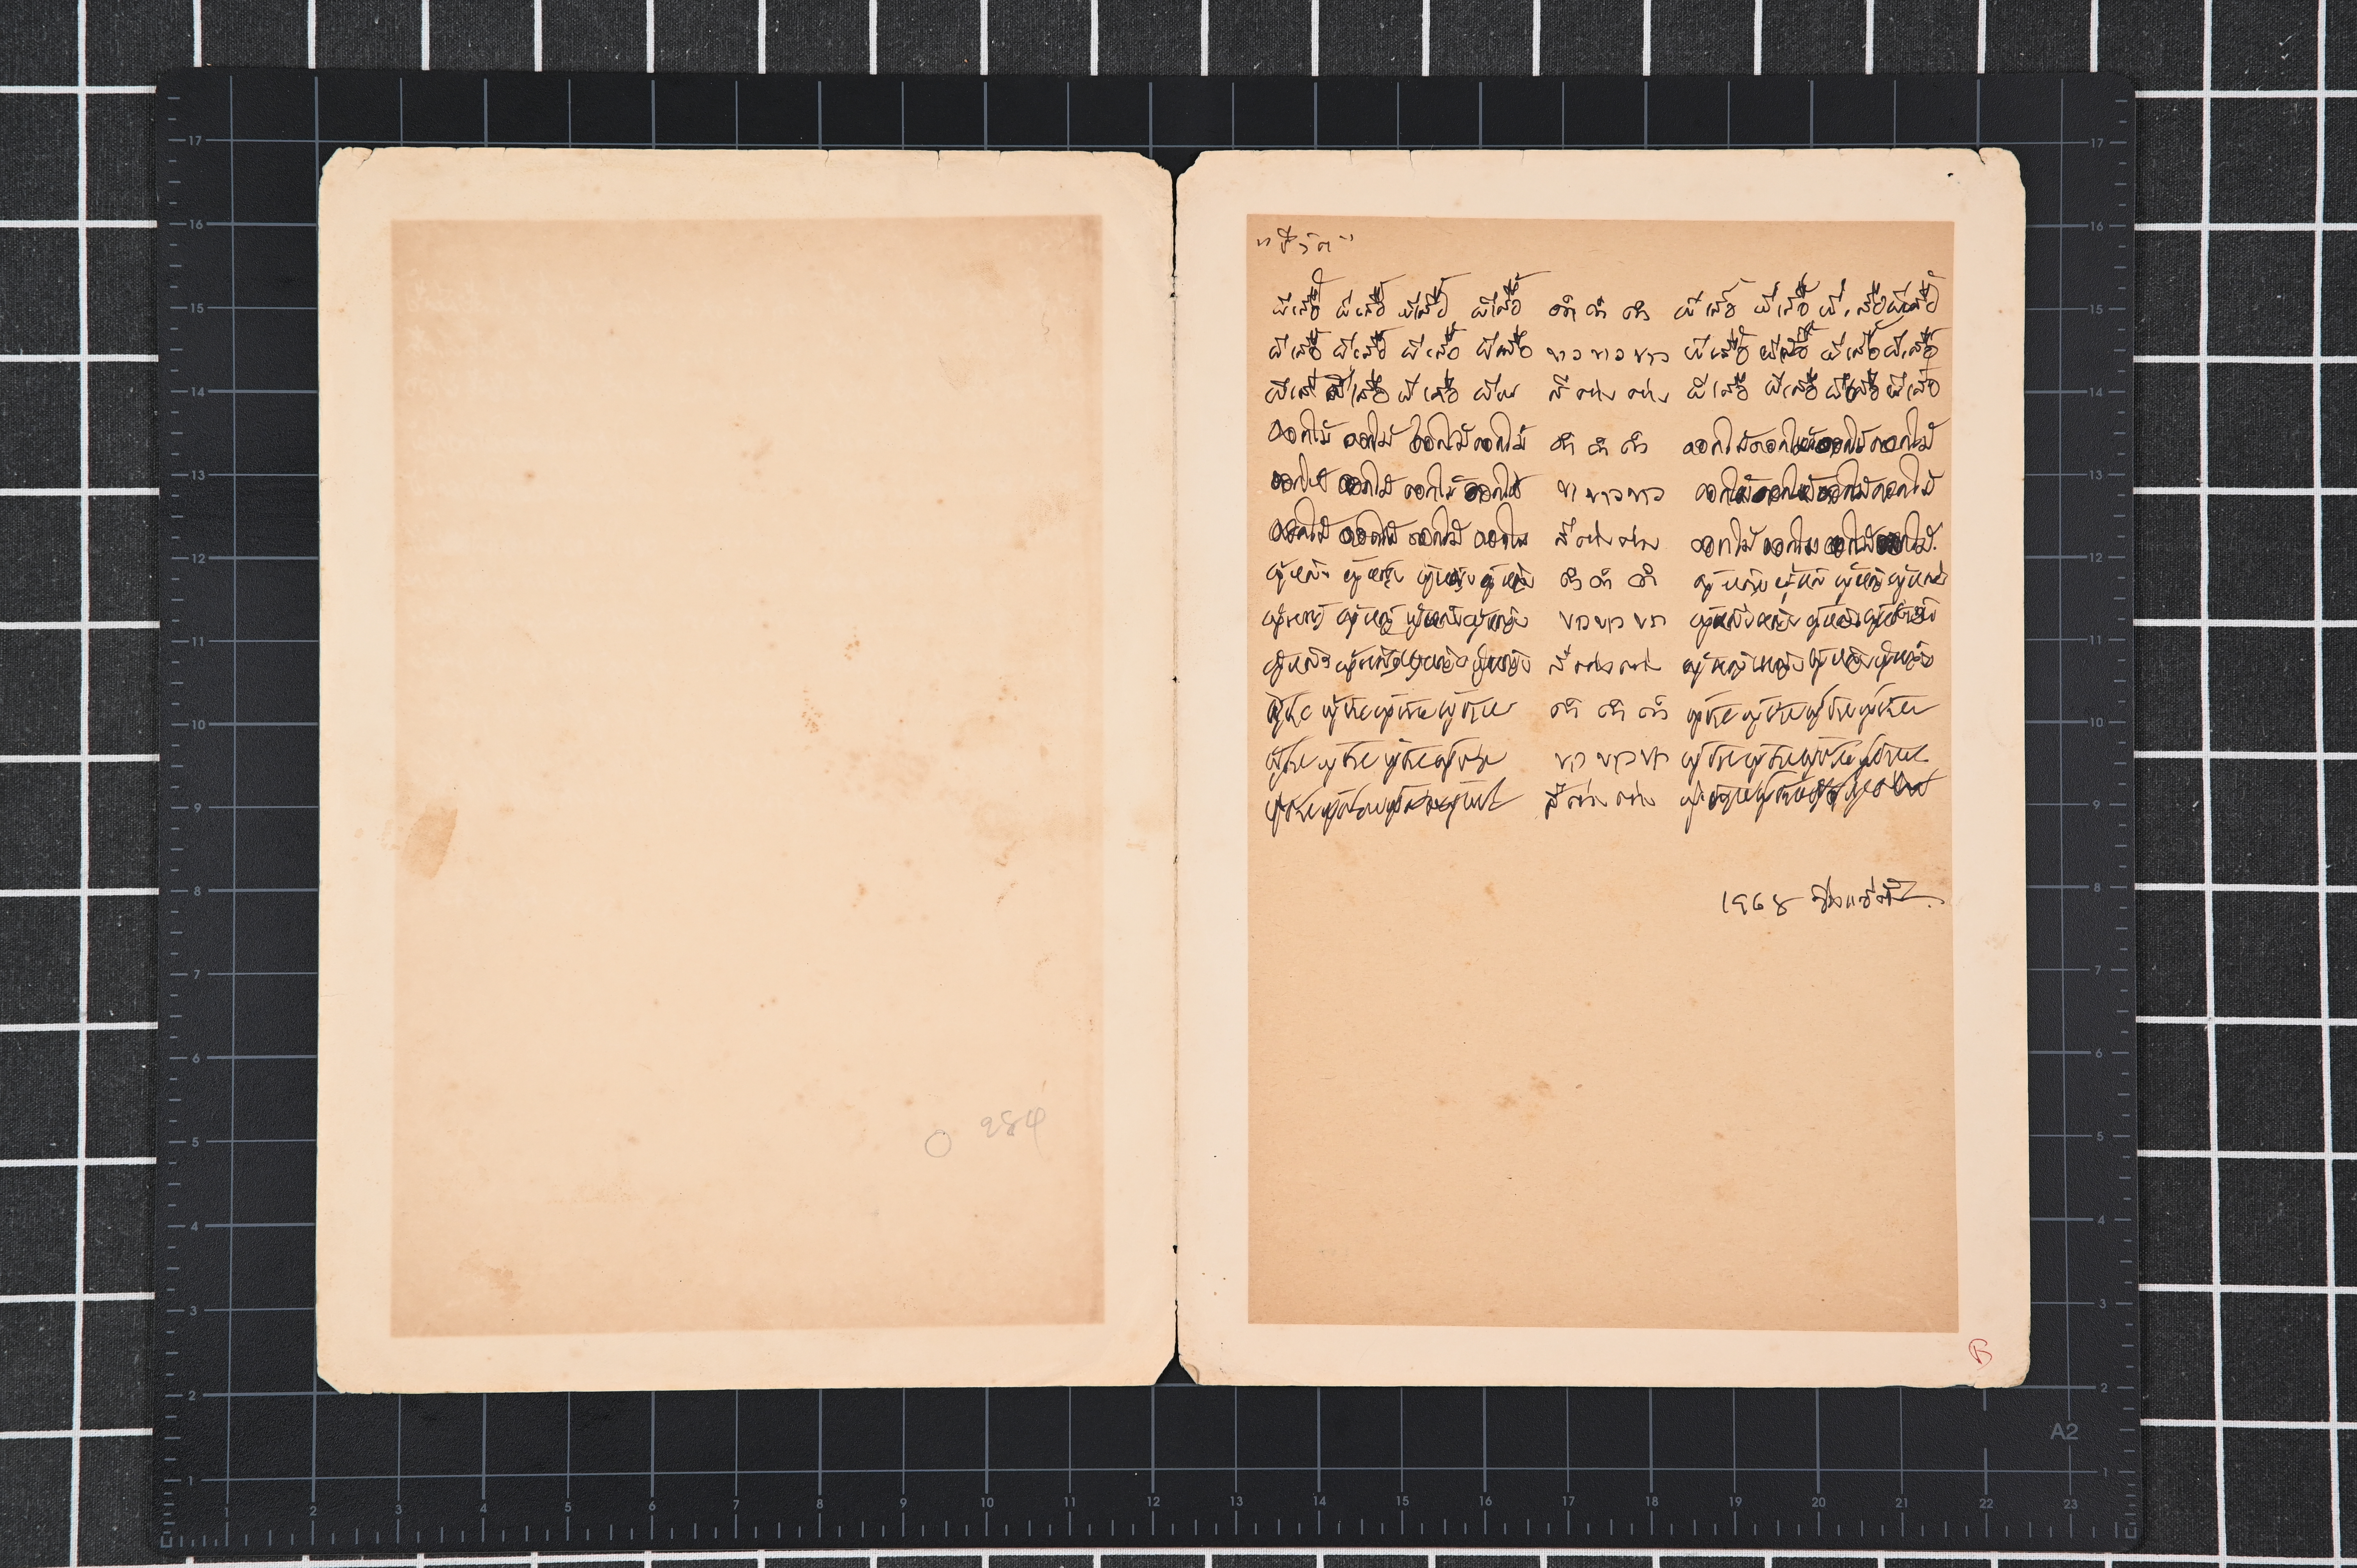 "ชีวิต"
ผีเสื้อ ผีเสื้อ ผีเสื้อ ผีเสื้อ ดำ ดำ ดำ ผีเสื้อ ผีเสื้อ ผีเสื้อ ผีเสื้อ
ผีเสื้อ ผีเสื้อ ผีเสื้อ ผีเสื้อ ขาว ขาว ขาว ผีเสื้อ ผีเสื้อ ผีเสื้อ ผีเสื้อ
ผีเสื้อ ผีเสื้อ ผีเสื้อ ผีเสื้อ สี ต่าง ต่าง ผีเสื้อ ผีเสื้อ ผีเสื้อ ผีเสื้อ
ดอกไม้ ดอกไม้ ดอกไม้ ดอกไม้ ดำ ดำ ดำ ดอกไม้ ดอกไม้ ดอกไม้ ดอกไม้
ดอกไม้ ดอกไม้ ดอกไม้ ดอกไม้ ขาว ขาว ขาว ดอกไม้ ดอกไม้ ดอกไม้ ดอกไม้
ดอกไม้ ดอกไม้ ดอกไม้ ดอกไม้ สี ต่าง ต่าง ดอกไม้ ดอกไม้ ดอกไม้ ดอกไม้
ผู้หญิง ผู้หญิง ผู้หญิง ผู้หญิง ดำ ดำ ดำ ผู้หญิง ผู้หญิง ผู้หญิง ผู้หญิง
ผู้หญิง ผู้หญิง ผู้หญิง ผู้หญิง ขาว ขาว ขาว ผู้หญิง ผู้หญิง ผู้หญิง ผู้หญิง
ผู้หญิง ผู้หญิง ผู้หญิง ผู้หญิง สี ต่าง ต่าง ผู้หญิง ผู้หญิง ผู้หญิง ผู้หญิง
ผู้ชาย ผู้ชาย ผู้ชาย ผู้ชาย ดำ ดำ ดำ ผู้ชาย ผู้ชาย ผู้ชาย ผู้ชาย
ผู้ชาย ผู้ชาย ผู้ชาย ผู้ชาย ขาว ขาว ขาว ผู้ชาย ผู้ชาย ผู้ชาย ผู้ชาย
ผู้ชาย ผู้ชาย ผู้ชาย ผู้ชาย สี ต่าง ต่าง ผู้ชาย ผู้ชาย ผู้ชาย ผู้ชาย
1968 จ่าง แซ่ตั้ง
B
A2
1 2 3 4 5 6 7 8 9 10 11 12 13 14 15 16 17 18 19 20 21 22 23